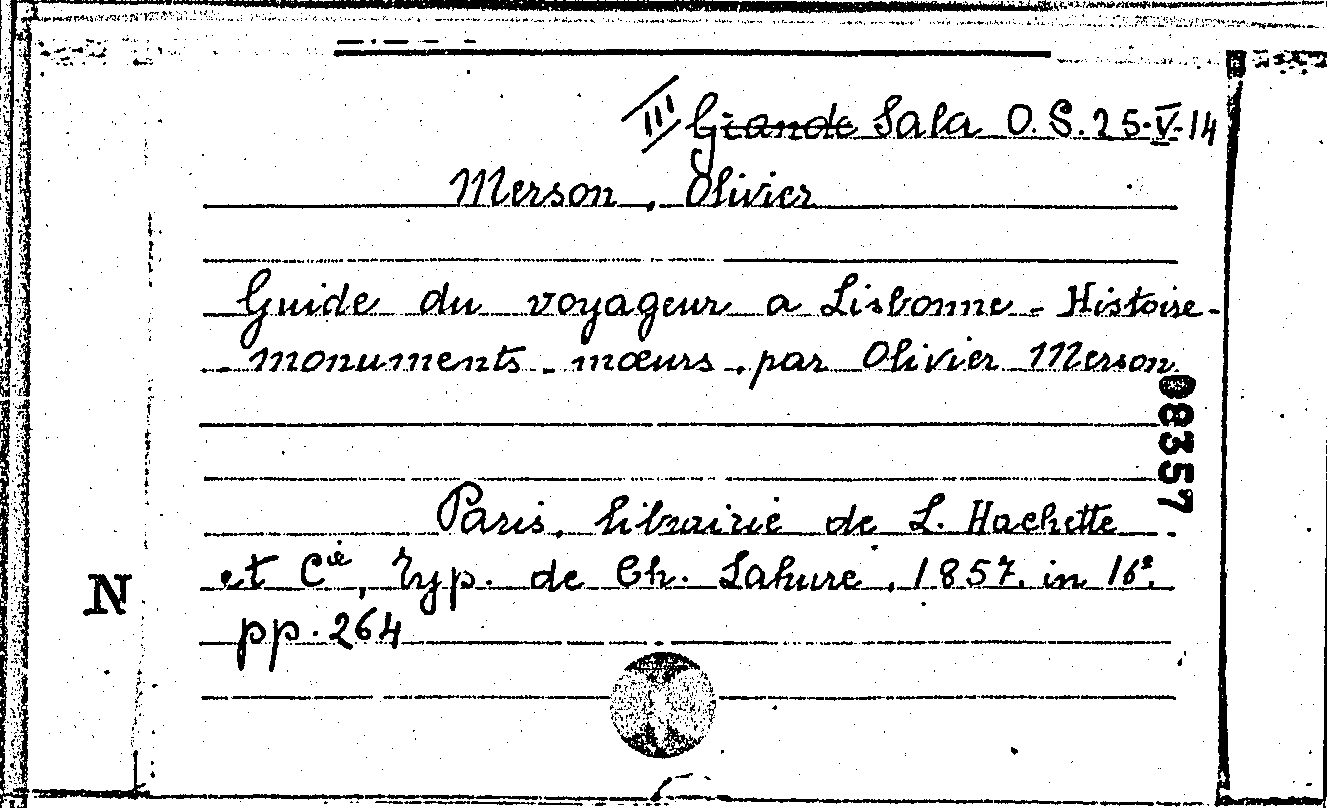 III Grande Sala O.S. 25.V.14
Merson, Olivier
Guide du voyageur a Lisbonne - Histoire -
- monuments - mœurs, par Olivier Merson.
08357
Paris, librairie de L. Hachette
et Cie, typ. de Ch. Lahure, 1857. in 16º.
pp. 264
N